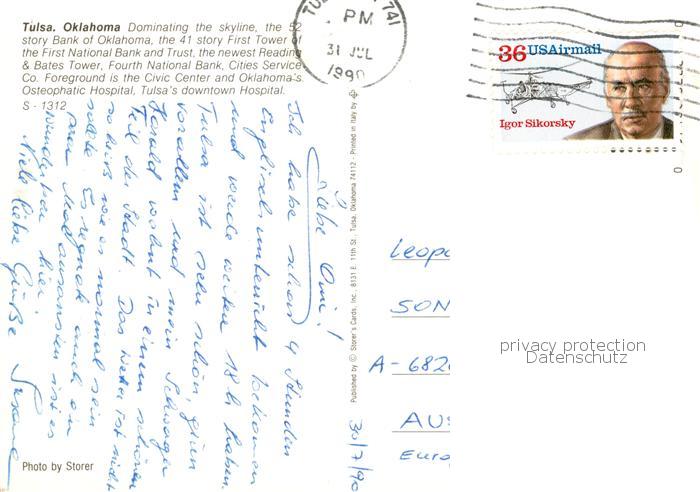 Tulsa. Oklahoma Dominating the skyline, the 52
story Bank of Oklahoma, the 41 story First Tower of
the First National Bank and Trust, the newest Reading
& Bates Tower, Fourth National Bank, Cities Service
Co. Foreground is the Civic Center and Oklahoma's
Osteophatic Hospital, Tulsa's downtown Hospital.
S - 1312
TUL 741
PM
31 JUL
1990
36 USAirmail
Igor Sikorsky
Liebe Omi!
Ich habe schon 4 Stunden
Englischunterricht bekommen
und werde weitere 18 h haben.
Tulsa ist sehr schön, grün
vorallem und mein Schwager
Harald wohnt in einem schönen
Teil der Stadt. Das Wetter ist nicht
so heiß wie es normal sein
sollte. Es regnet auch ein
paar Mal ansonsten ist es
wunderbar hier.
Viele liebe Grüße
Published by © Storer's Cards, Inc., 8131 E. 11th St., Tulsa, Oklahoma 74112 - Printed in Italy by
30/7/90
Leopo
SON
A-682
AUS
Euro
privacy protection
Datenschutz
Photo by Storer